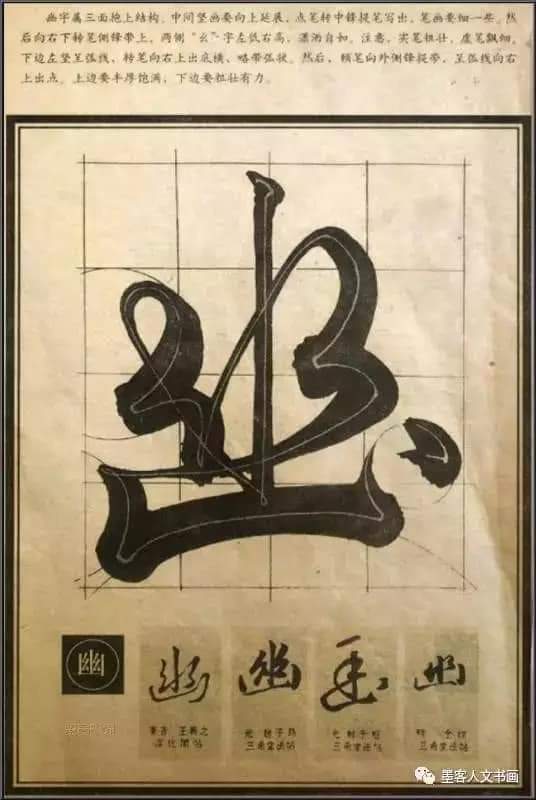 幽字属三面抱上结构。中间竖画要向上延展，点笔转中锋提笔写出，笔画要细一些。然
后向右下转笔侧锋带上，两侧“幺”字左低右高，潇洒自如。注意，实笔粗壮，虚笔飘细。
下边左竖呈弧线，转笔向右上出底横，略带弧状。然后，顿笔向外侧锋提带，呈弧线向右
上出点。上边要丰厚饱满，下边要粗壮有力。
幽
幽
幽 幽 幽 幽
东晋 王羲之
淳化阁帖
三希堂法帖
元 鲜于枢
三希堂法帖
三希堂法帖
墨客人文书画